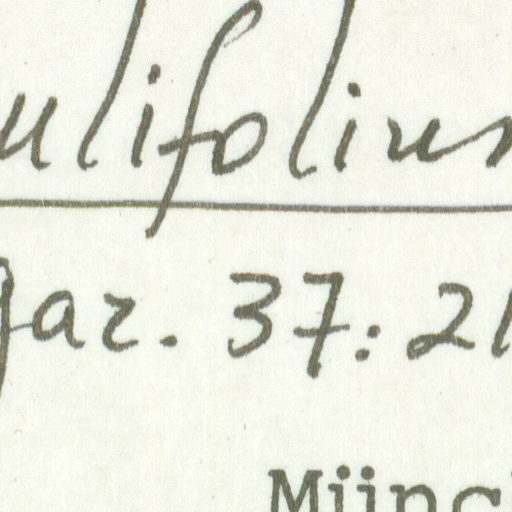 ulifolius
gar. 37: 21
Münc